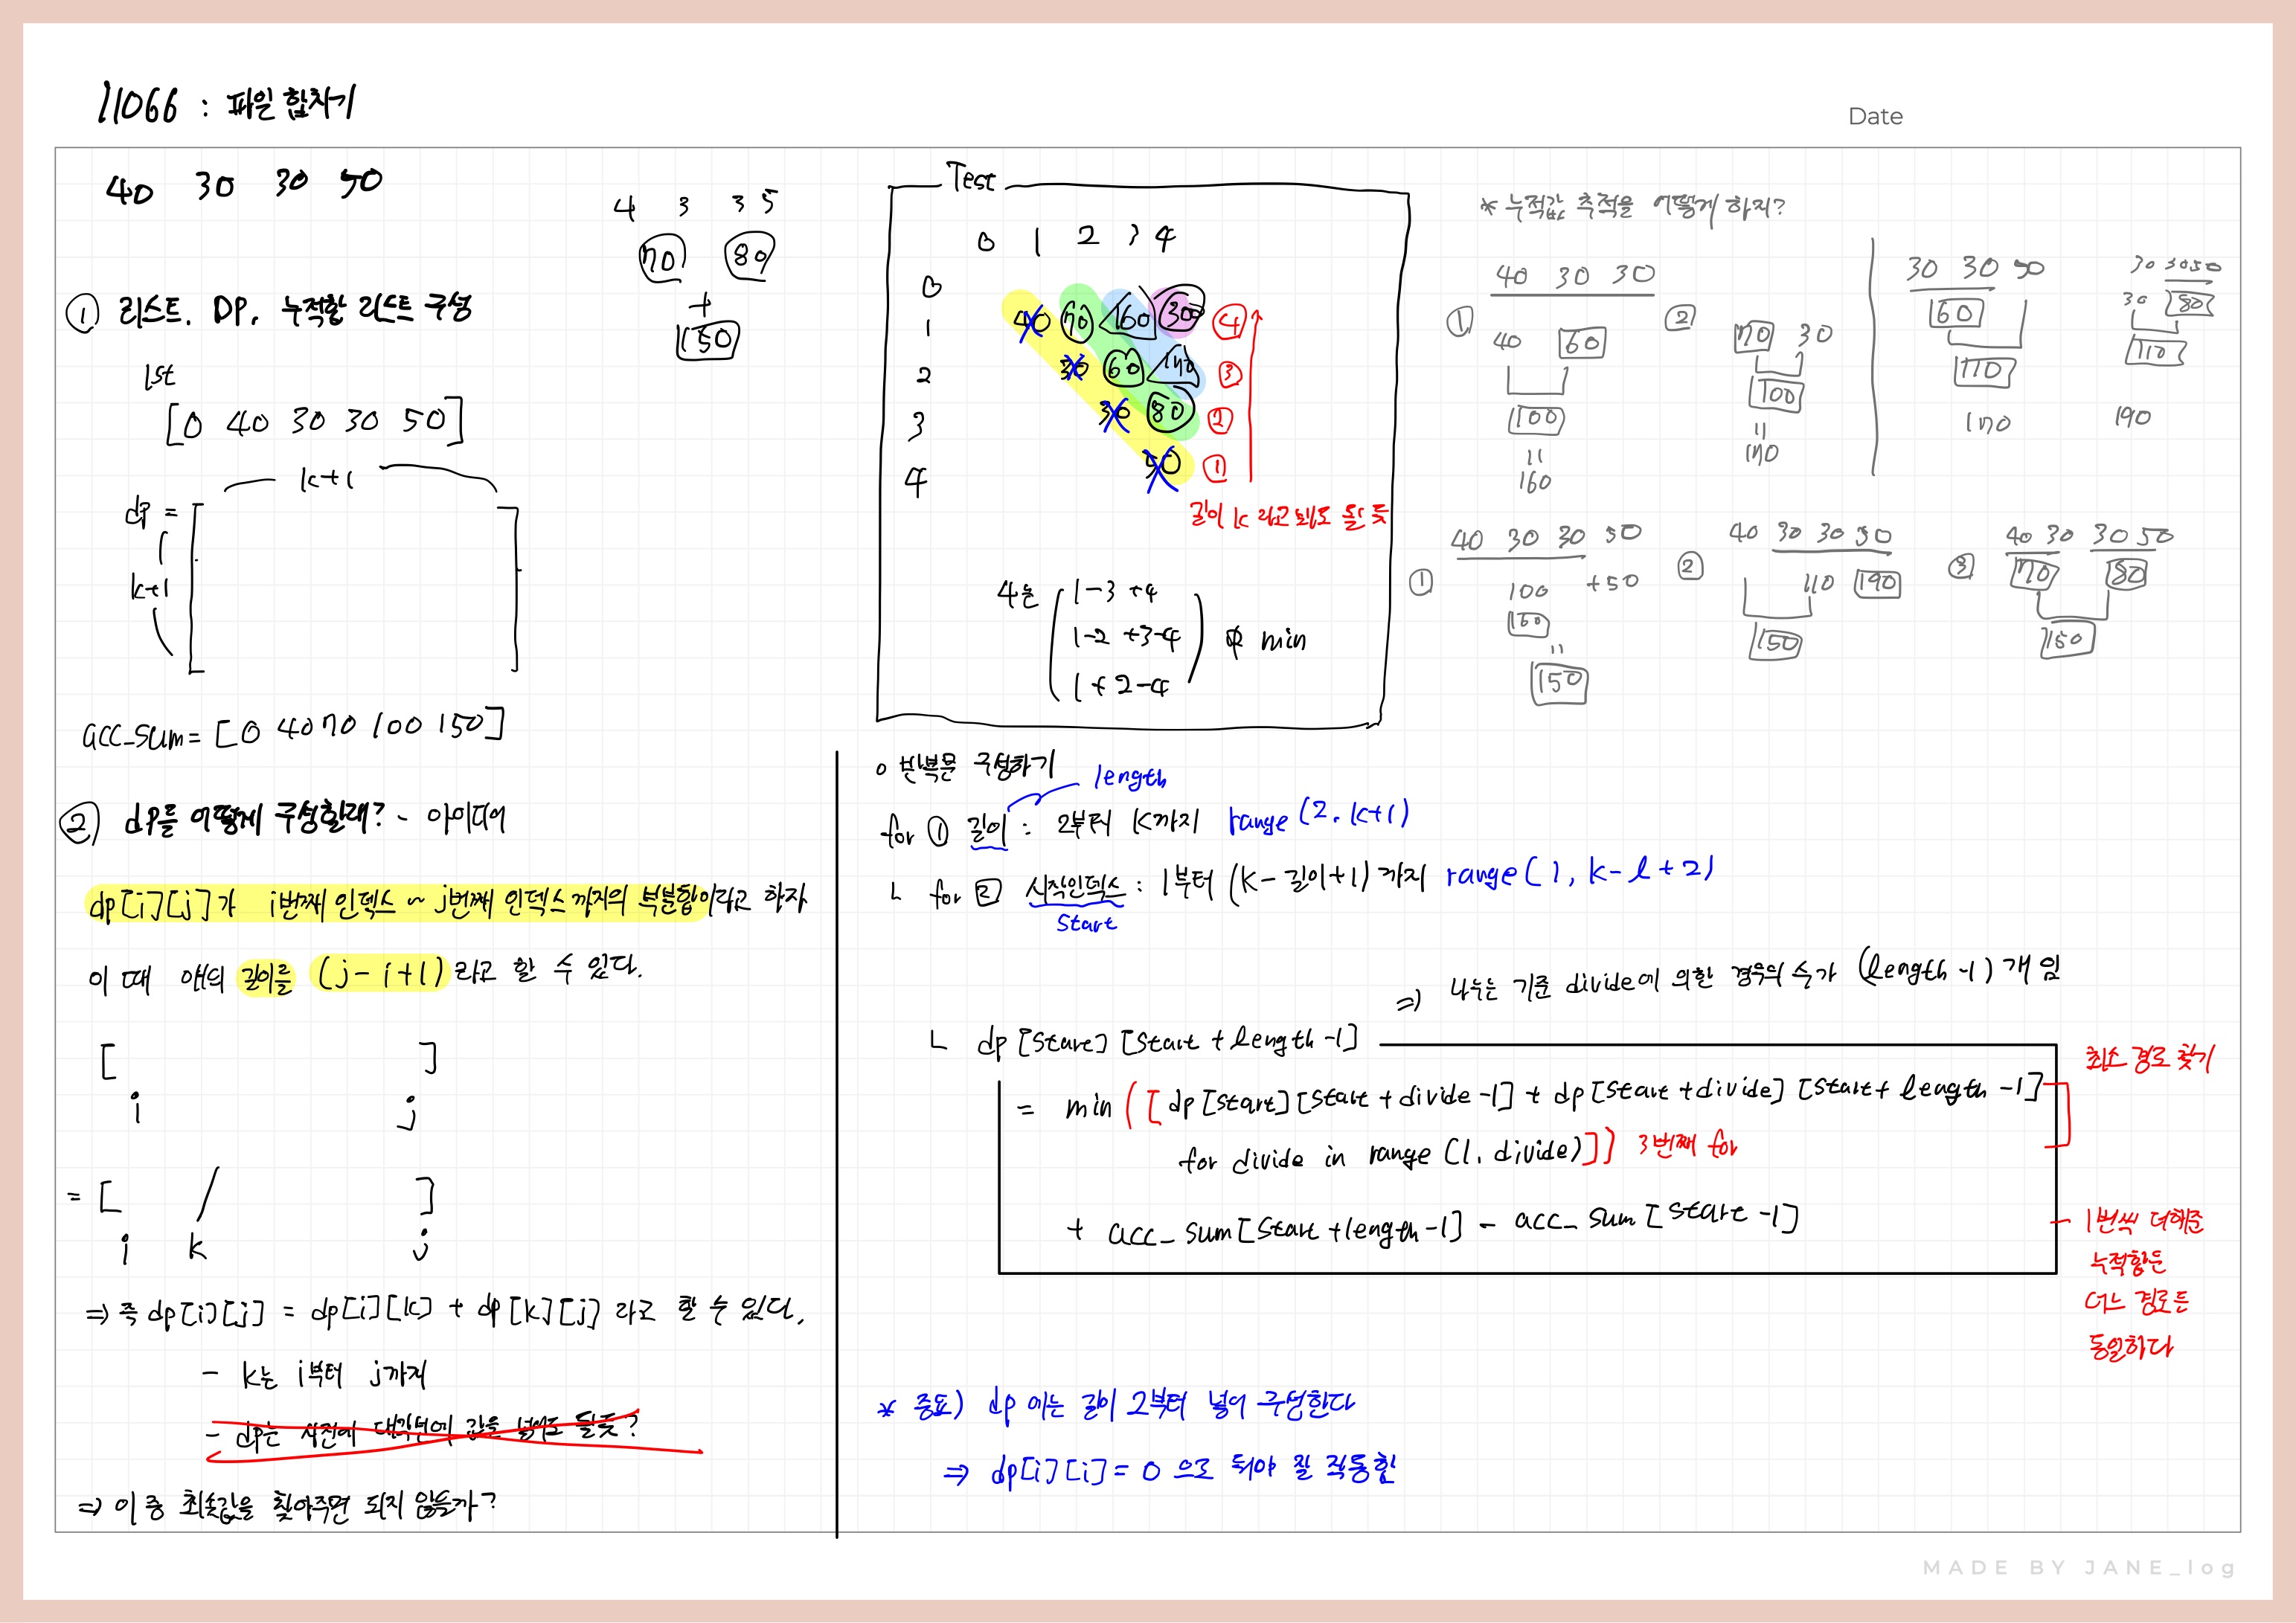 11066 : 파일 합치기
Date
40 30 30 50
4 3 3 5
70 80
+
150
① 리스트, DP, 누적합 리스트 구성
lst
[0 40 30 30 50]
k+1
dp =
k+1
acc_sum = [0 40 70 100 150]
② dp를 어떻게 구성할래? - 아이디어
dp[i][j]가 i번째 인덱스 ~ j번째 인덱스 까지의 부분합이라고 하자
이 때 얘의 길이를 (j-i+1) 라고 할 수 있다.
[ ]
i j
= [ / ]
i k j
⇒ 즉 dp[i][j] = dp[i][k] + dp[k][j] 라고 할 수 있다.
- k는 i부터 j까지
- dp는 사전에 대각선에 값을 넣어도 될듯?
⇒ 이 중 최솟값을 찾아주면 되지 않을까?
Test
0 1 2 3 4
0
1 40 70 160 300 ④
2 30 60 170 ③
3 30 80 ②
4 50 ①
길이 k 라고 봐도 될 듯
4는
1-3 +4
1-2 +3-4
1 + 2-4
min
* 누적값 추적을 어떻게 하지?
40 30 30
① 40 60
100
=
160
② 70 30
100
=
170
30 30 50
60
110
170
30 30 50
30 80
110
190
① 40 30 30 50
100 +50
160
=
150
② 40 30 30 50
110 190
150
③ 40 30 30 50
70 80
150
○ 반복문 구성하기
length
for ① 길이 : 2부터 K까지 range (2, k+1)
ㄴ for ② 시작인덱스 : 1부터 (K-길이+1) 까지 range(1, k-l+2)
Start
⇒ 나누는 기준 divide에 의한 경우의 수가 (length-1) 개 임
ㄴ dp [start] [start + length -1]
= min ([ dp [start][start + divide -1] + dp [start + divide] [start + length -1]
for divide in range (1, divide)]) 3번째 for
+ acc_sum [start + length -1] - acc_sum [start -1]
최소 경로 찾기
1번씩 더해준
누적합은
어느 경로든
동일하다
* 중요) dp 에는 길이 2부터 넣어 구성한다
⇒ dp[i][i] = 0 으로 둬야 잘 작동함
MADE BY JANE_log